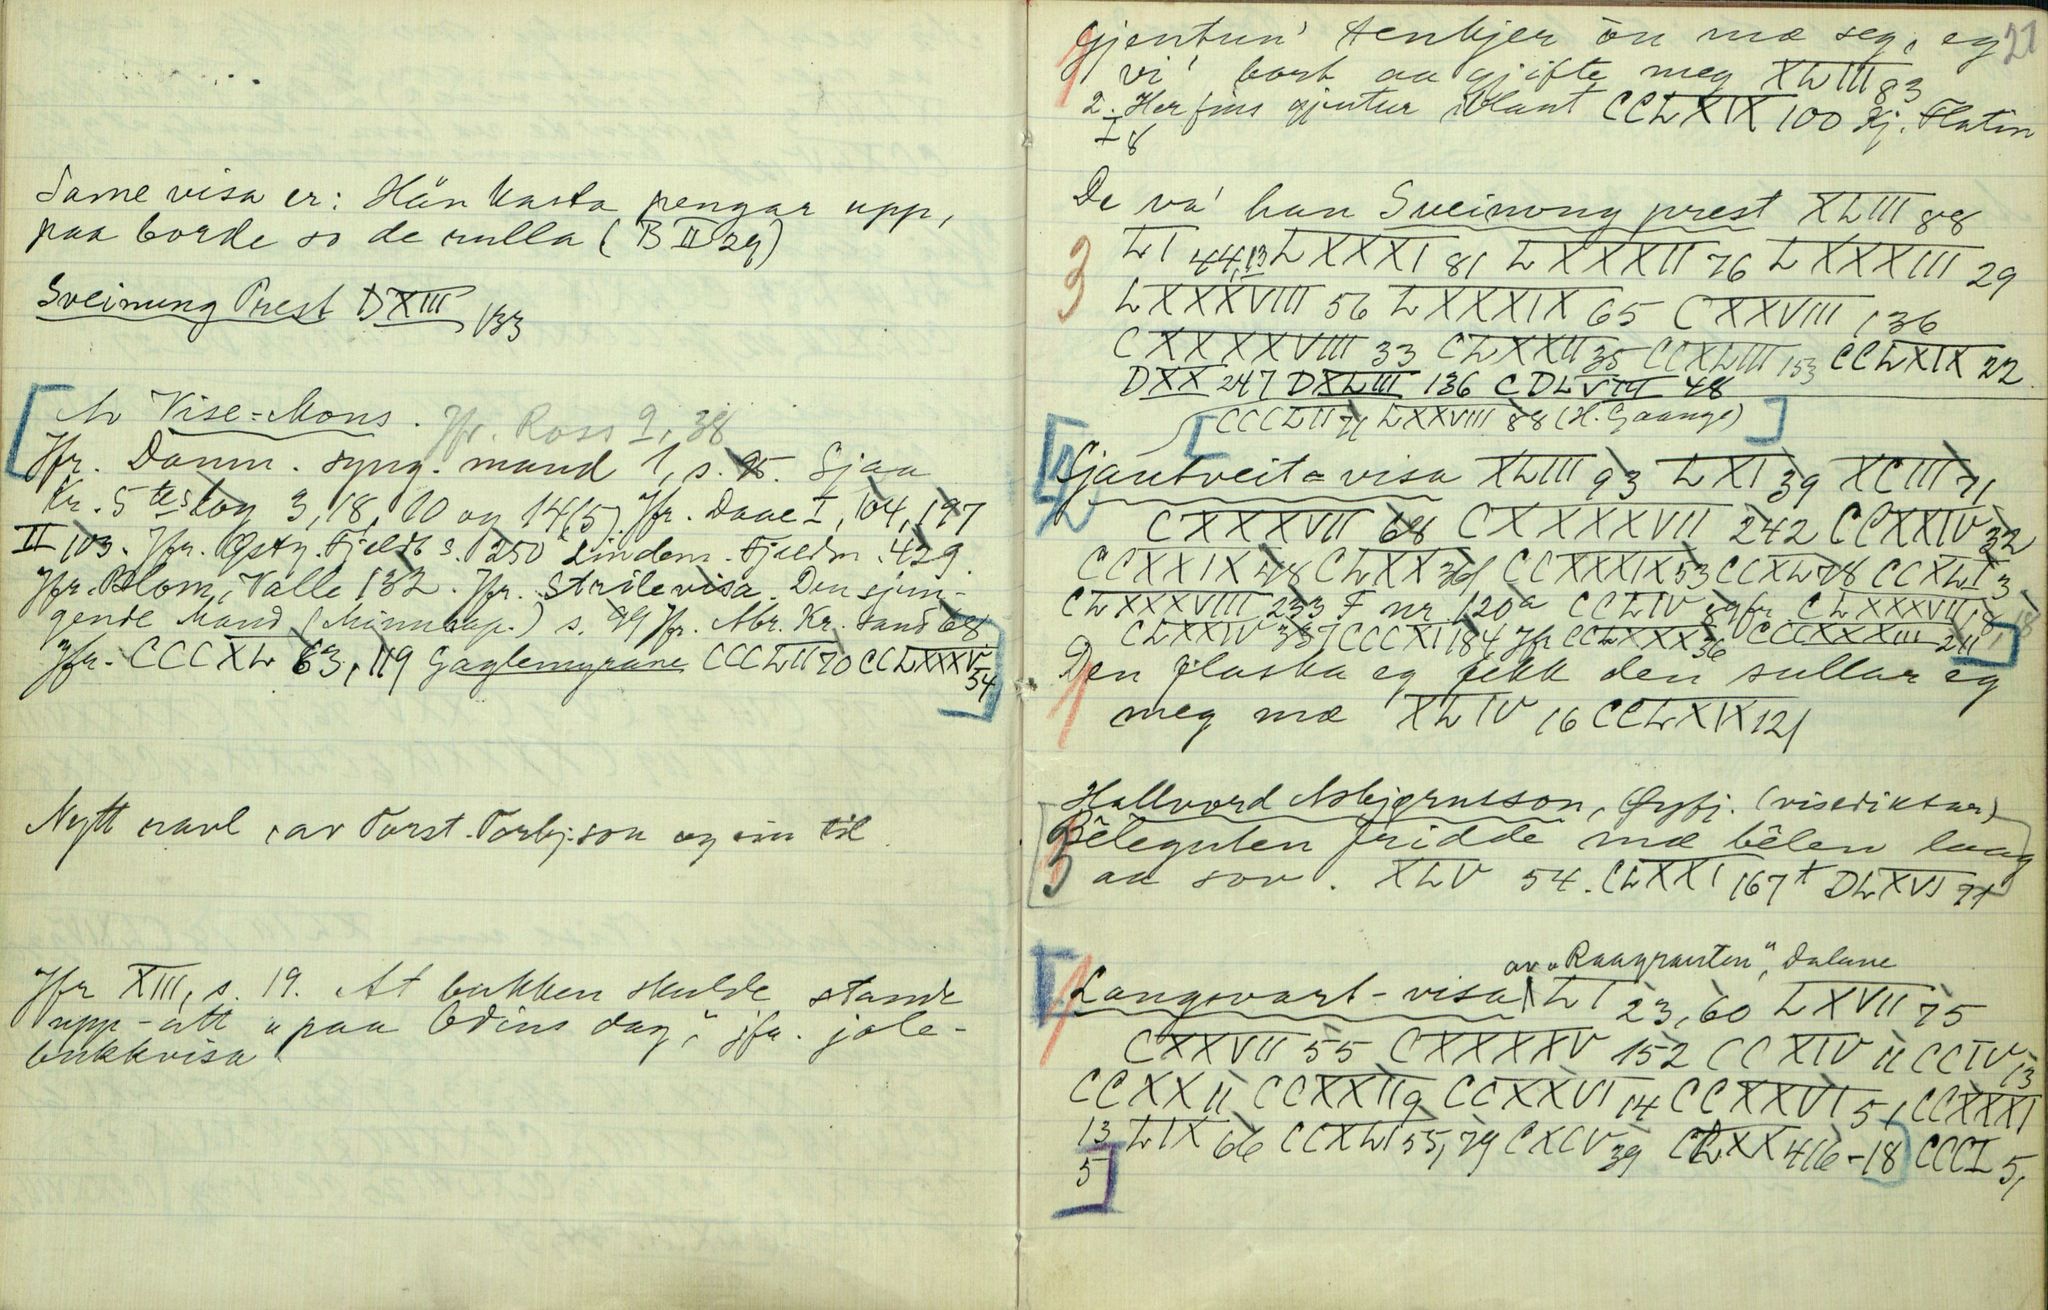 Same visa er: Hån kasta pengar upp,
paa borde so de rulla (B II 29)
Sveinung Prest DXIII 133
Av Vise-Mons. Jfr. Ross I, 38
Jfr. Danm. syng. mand 1, s. 95. Sjaa
Kr. 5tes log 3, 18, 10 og 14(5). Jfr. Daae I, 104, 197
II 103. Jfr. Østg. Fjeldb s. 250 Lindem. Fjeldm. 429.
Jfr. Blom, Valle 132. Jfr. Strilevisa. Den sjun-
gende Mand (Minneap.) s. 99 Jfr. Abr. Kr. sand 68
Jfr. CCCXL 63, 119 Gaglemyrane CCCLII 70 CCLXXXV
54
Nytt ravl, av Torst. Torbj:son og ein til.
Jfr XIII, s. 19. At bukken skulde stande
upp-att "paa Odins dag", jfr. jole-
bukkvisa
21
Gjentun' tenkjer ôn mæ seg, eg
vi' bort aa gjifte meg XLIII 83
2. Her fins gjentur blant CCLXIX 100 Kj. Flatin
I 8
De va' han Sveinung prest XLIII 88
3 LI 44, 13 LXXXI 81 LXXXII 76 LXXXIII 29
LXXXVIII 56 LXXXIX 65 CXXVIII 136
CXXXXVIII 33 CLXXII 35 CCXLIII 153 CCLXIX 22
DXX 247 DXLIII 136 CDLVIII 48
CCCLII 71 LXXVIII 88 (H. Gaange)
Gjantveit-visa XLIII 93 LXI 39 XCIII 71
CXXXVII 68 CXXXXVII 242 CCXXIV 32
CCXXIX 48 CLXX 361 CCXXXIX 53 CCXL 78 CCXLI 3
CLXXXVIII 233 F nr 120a CCLIV 8 jfr CLXXXVII, 8 18
CLXXIV 387 CCCXI 184 Jfr CCLXXX 36 CCCXXXIII 211
1 Den flaska eg fekk den sullar eg
meg mæ XLIV 16 CCLXIX 121
Hallvord Asbjørnsson, Øyfj. (visediktar)
3 Bêleguten fridde mæ bêlen laag
aa sov. XLV 54. CLXXI 167 + DLXVI 71
av "Raagrauten", Dalane
1 Langsvart-visa LI 23, 60 LXVII 75
CXXVII 55 CXXXXV 152 CCXIV 11 CCIV 13
CCXX 11 CCXXII 9 CCXXVI 14 CCXXVI 51 CCXXXI
13 LIX 66 CCXLI 55, 79 CXCV 39 CLXX 416-18 CCCI 5,
5